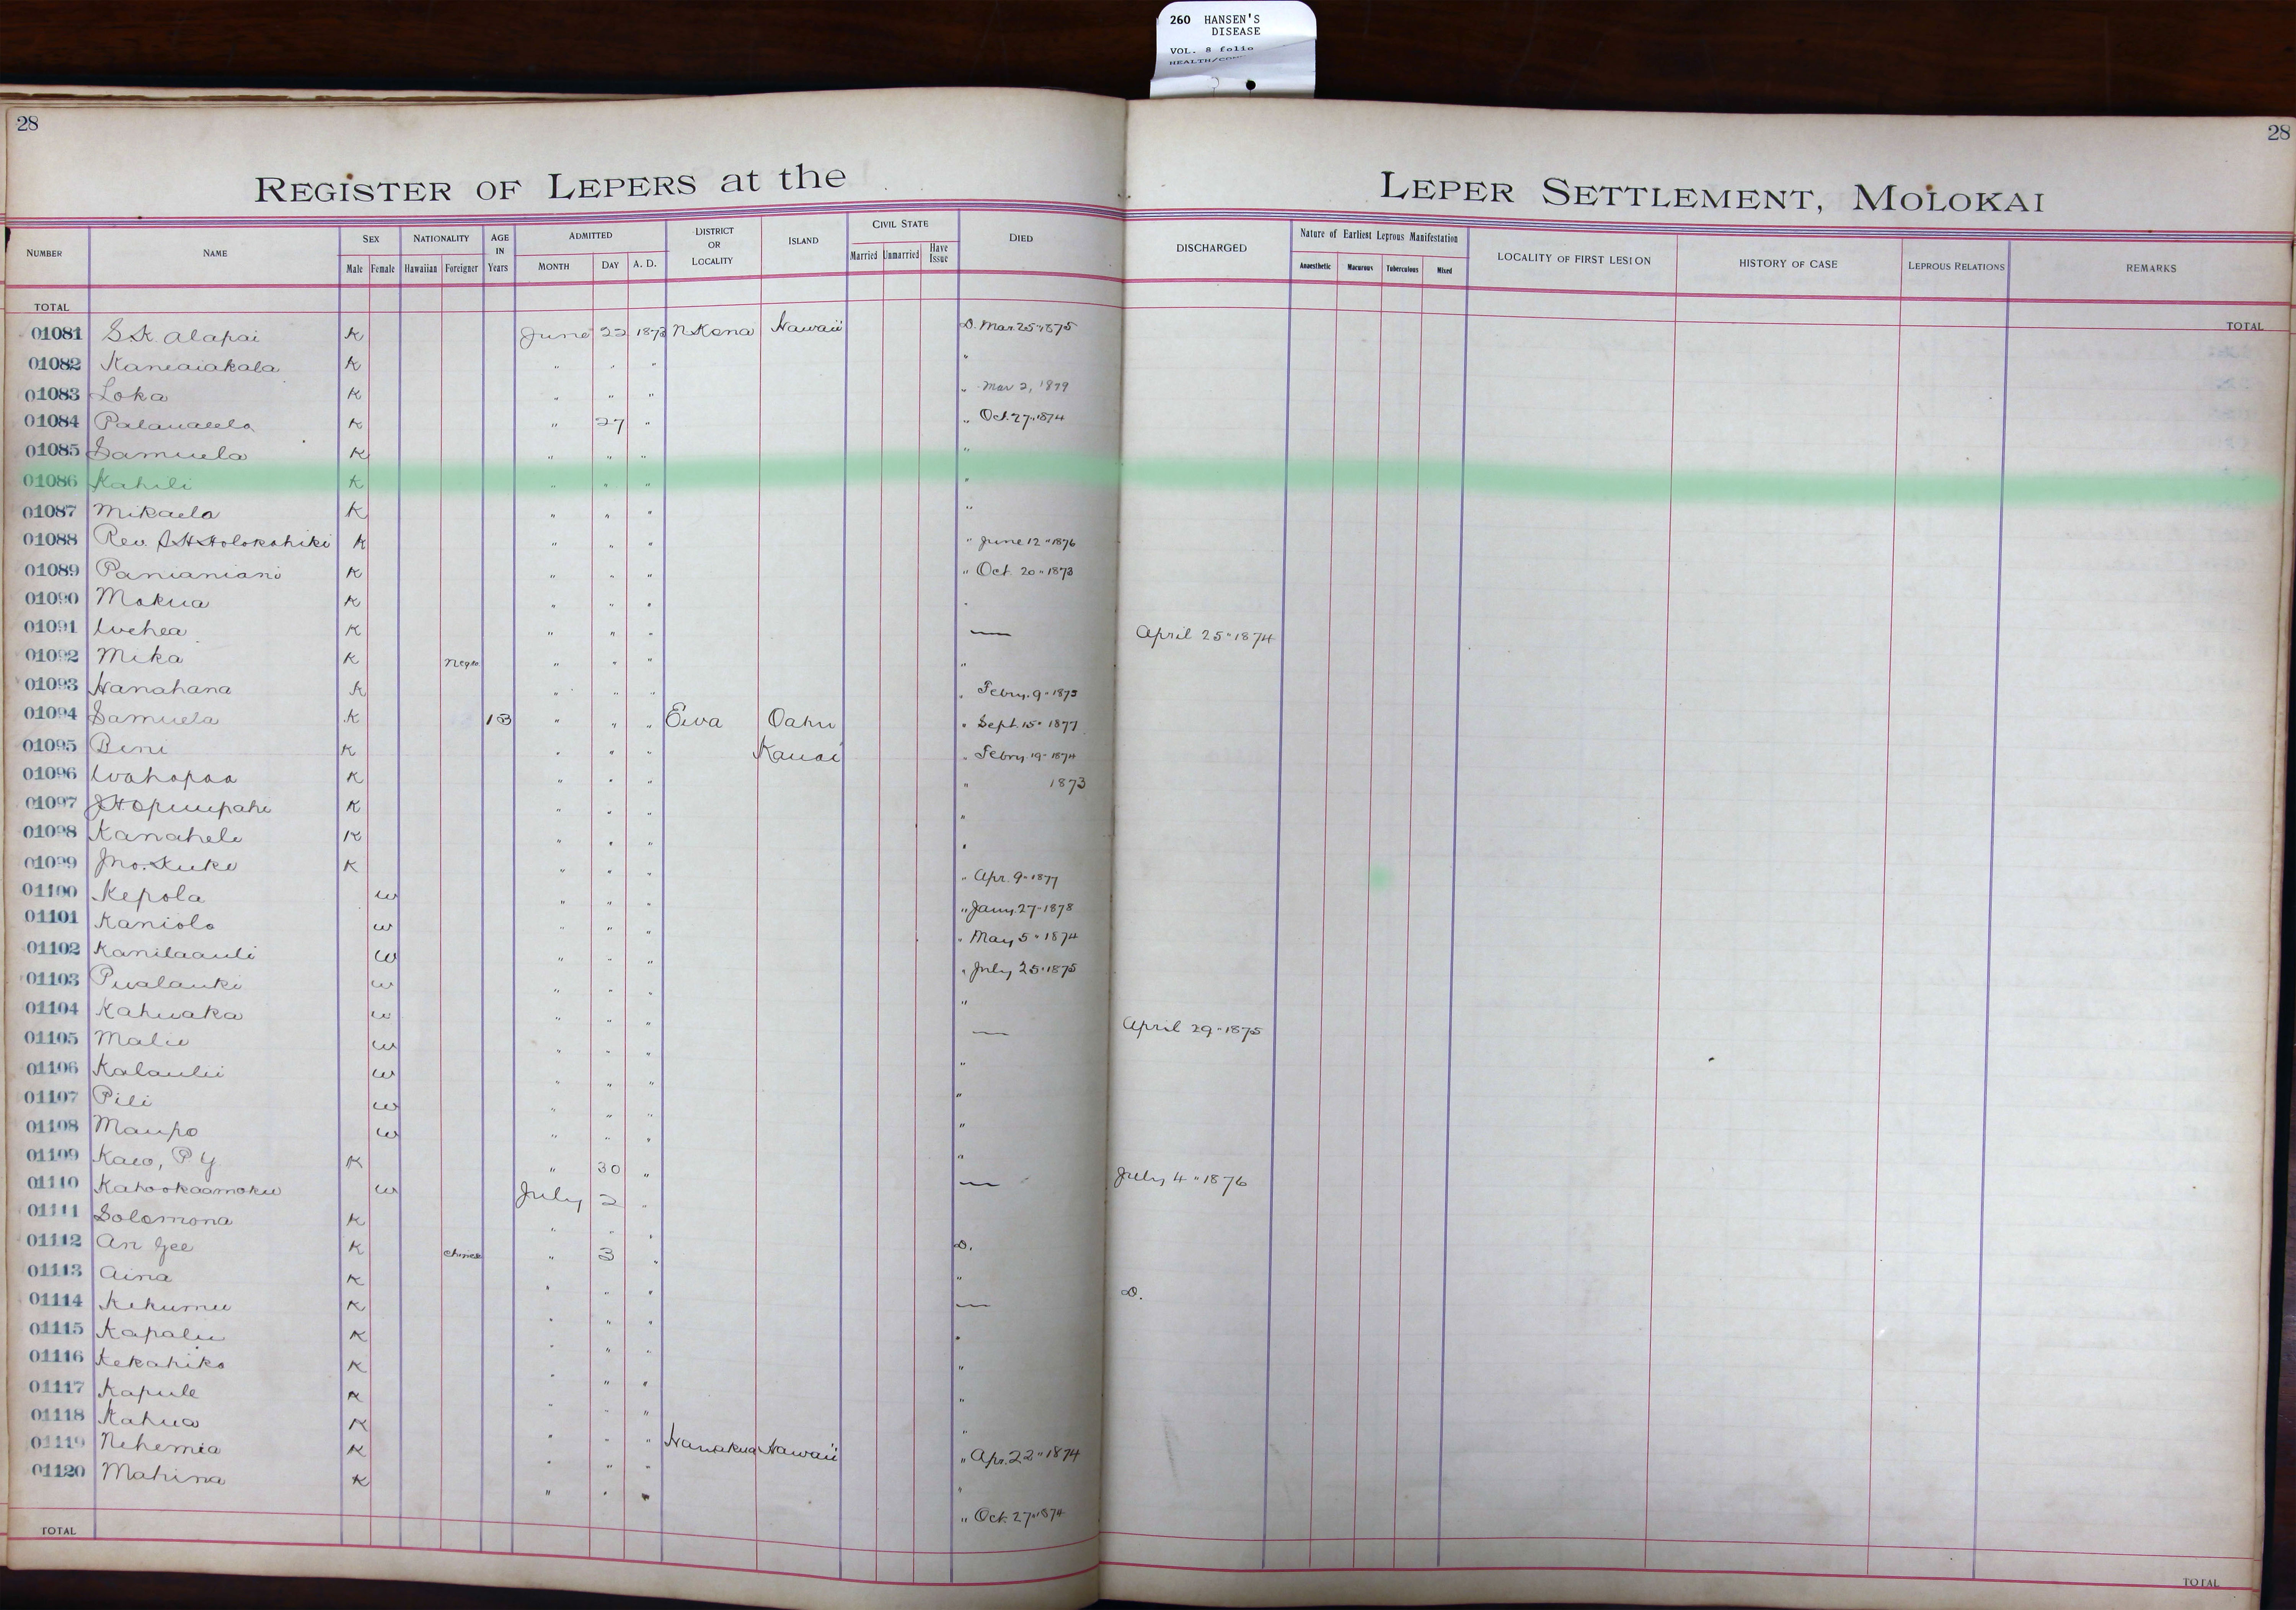 260 HANSEN'S
DISEASE
VOL. 8 folio
28
28
REGISTER OF LEPERS at the LEPER SETTLEMENT, MOLOKAI
NUMBER NAME SEX Male Female NATIONALITY Hawaiian Foreigner AGE IN Years ADMITTED MONTH DAY A. D. DISTRICT OR LOCALITY ISLAND CIVIL STATE Married Unmarried Have Issue DIED DISCHARGED Nature of Earliest Leprous Manifestation Anaesthetic Macurous Tuberculous Mixed LOCALITY OF FIRST LESION HISTORY OF CASE LEPROUS RELATIONS REMARKS
TOTAL TOTAL
01081 S.K. Alapai K June 22 1873 N Kona Hawaii D. Mar. 25 " 1875
01082 Kaneaiakala K " " " "
01083 Loka K " " " " Mar 2, 1879
01084 K " 27 " " Oct. 27 " 1874
01085 Samuela K " " " "
01086 Kahili K " " " "
01087 Mikaela K " " " "
01088 Rev. Holokahiki K " " " " June 12 " 1876
01089 Panianiani K " " " " Oct. 20 " 1873
01090 Mokua K " " " "
01091 K " " " — April 25 " 1874
01092 Mika K Negro " " " "
01093 Hanahana K " " " " Febry. 9 "
01094 Samuela K 13 " " " Ewa Oahu " Sept. 15 " 1877
01095 Beni K " " " Kauai " Febry 19 " 1874
01096 Wahapaa K " " " " 1873
01097 J.H. K " " " "
01098 Kanahele K " " " "
01099 Jno. Kuke K " " " " Apr. 9 " 1877
01100 Kepola w " " " " Jany. 27 " 1878
01101 Kaniolo w " " " " May 5 " 1874
01102 Kanilaauli w " " " " July 25 " 1875
01103 Pualauki w " " " "
01104 Kahuaka w " " " — April 29 " 1875
01105 Malie w " " " "
01106 Kalaulii w " " " "
01107 Pili w " " " "
01108 Maupo w " " " "
01109 Kaeo, P Y K " 30 " — July 4 " 1876
01110 Kahookaamoku w July 2 "
01111 Solomona K " " " D.
01112 An Gee K Chinese " 3 " "
01113 Aina K " " " — D.
01114 Kekumu K " " " "
01115 Kapalu K " " " "
01116 Kekahiko K " " " "
01117 Kapule K " " " "
01118 Kahua K " " " Hamakua Hawaii " Apr. 22 " 1874
01119 Nehemia K " " " "
01120 Mahina K " " " " Oct. 27 " 1874
TOTAL TOTAL